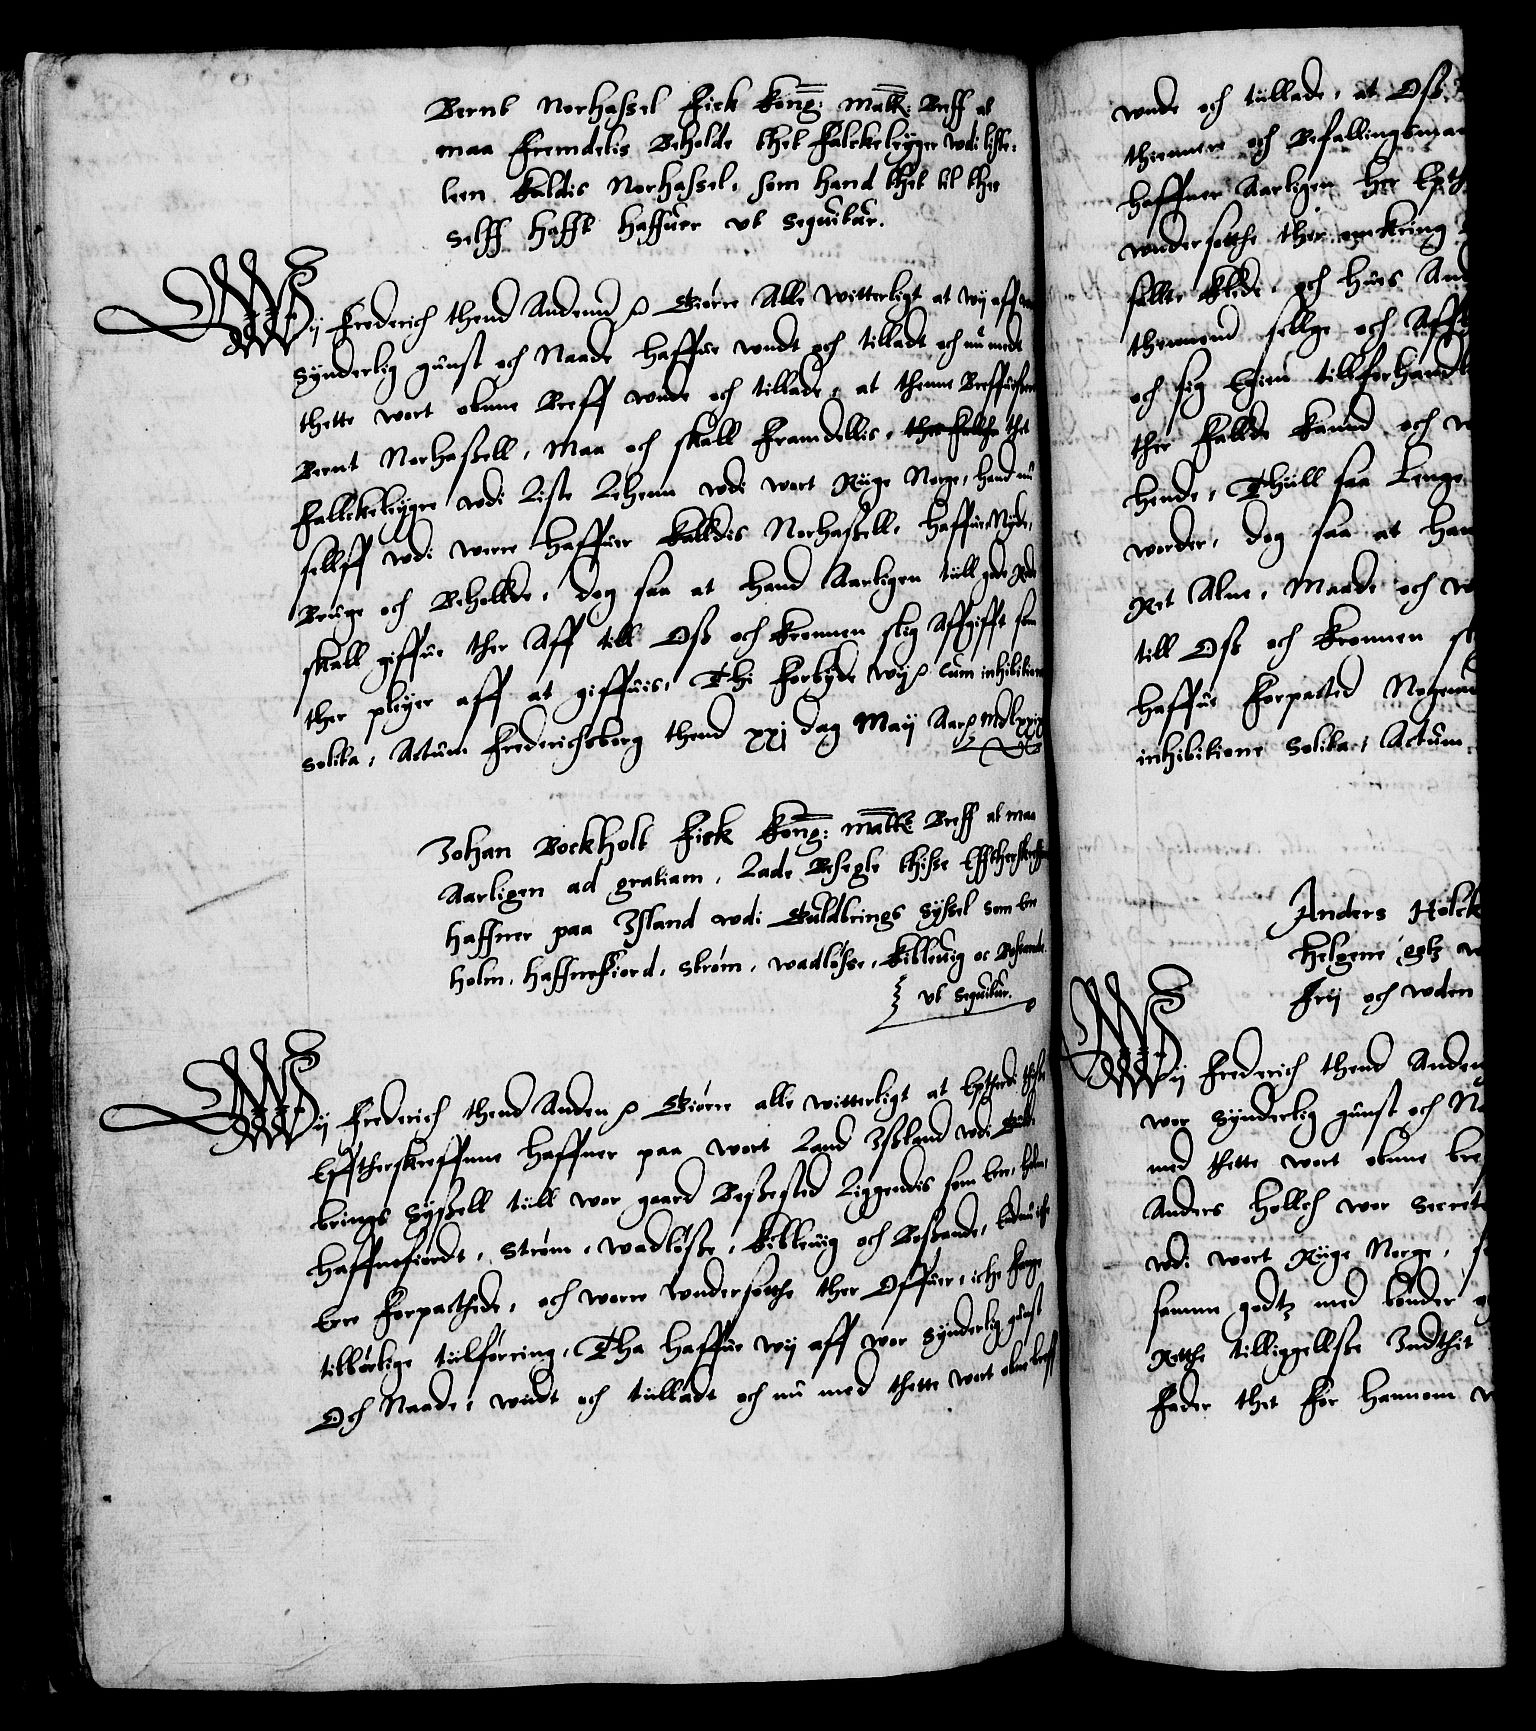 Bernt Norhassel Fick Kong: Matt: Breff at
maa fremdelis Beholde thet falckeleyger wdi liste-
leen kaldis Norhassel, som hand thet til thes
selff hafft haffuer vt sequitur.
Wij Frederich thend Andenn Giørre Alle witterligt at wij aff
synderlig gunst och Naade haffue wndt och tilladt och nu mede
thette wort obnne Breff wnde och tillade, at thenne Breffuisere
Bernt Norhaßell, Maa och skall framdellis, thet
falckeleygre wdi Liste Lehenn wdi wort Riige Norge, hand nu
sellff wdi were haffuer kalldis Norhaßell, haffue, Nyde,
Bruge och Behollde, dog saa at hand Aarligen tiill gode Rede
skall giffue ther Aff till Oss och kronnen slig Affgifft som
ther pleyer aff at giffuis, Thi forbyde wij cum inhibitione
solita, Actum Frederichsborg thend xxj dag Maij Aar mdlxxix
Johan Bockholt Fick Kong: Matts Breff at maa
Aarligen ad gratiam, Lade Besegle thisse Effterskreffne
haffner paa Island wdi Guldbrings Syssel som ere
holm, haffnefiord, strøm, wadløsse, kibleuig oc Bossande
vt sequitur.
Wij Frederich thend Anden Giørre alle witterligt at Epthterdi thisse
Efftherskreffnne haffner paa wort Land Ißland wdi Guld
brings Syßell tiill wor gaard Beßested Liggendis som ere, holm,
haffnefiordt, Strøm, wadløße, kibleuig och Boßande, endnu icke
ere forpacthede, och worre wndersotthe ther Offuer, icke faage
tilbørlige tiilføring, Tha haffue wij aff wor synderlig gunst
Och Naade, wndt och tiilladt och nu med thette wort obne breff
wnde och tiillade, at Oss
thiennere och Befallingsmand
haffner Aarligen her Epth
wndersotthe ther omkring
sellte klede, och huis And
themmend sellge och Aff
och sig Egien tillforhandl
ther fallde kannd, och
hende, Thiill saa Lenge
worder, dog saa at hand
Ret Alne, Maade och
till Oss och kronnen
haffue forpacted Nogenn
inhibitione Solita, Actum
Anders Holck
helgene gotz
Frij och wden
Wij Frederich thend Anden
wor synderlig gunst och Naa
med thette wort obnne bre
Anders Hollch wor Secrete
wdi wort Riige Norge,
samme godtz med bønder
Retthe tilliggellse Indthit
Fader thet for hannom